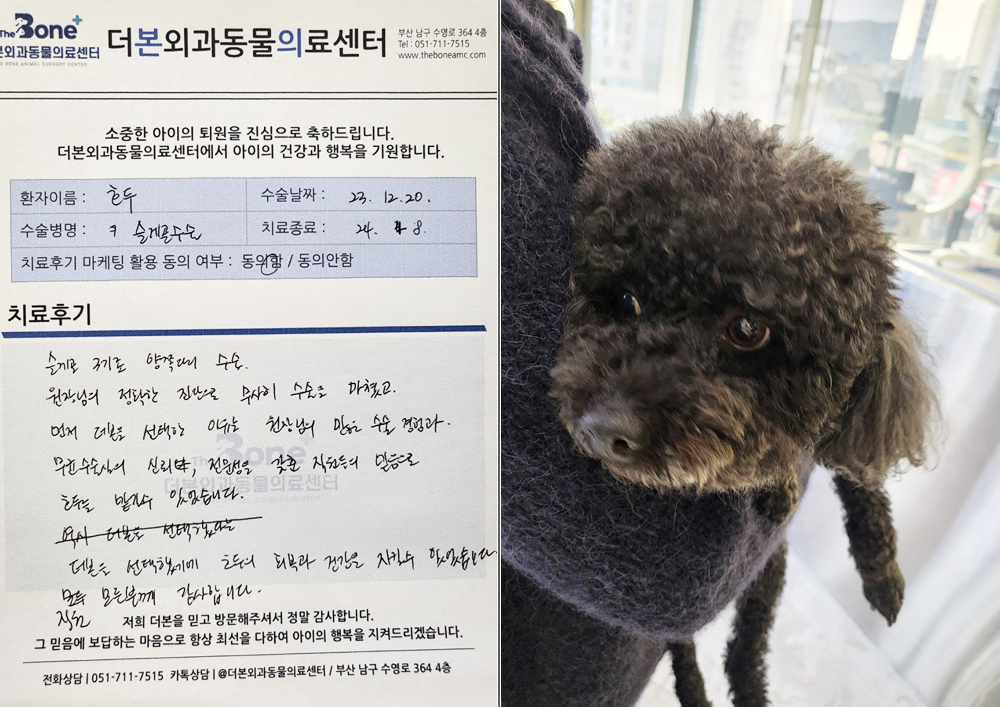 The Bone+
더본외과동물의료센터
THE BONE ANIMAL SURGERY CENTER
더본외과동물의료센터
부산 남구 수영로 364 4층
Tel : 051-711-7515
www.theboneamc.com
소중한 아이의 퇴원을 진심으로 축하드립니다.
더본외과동물의료센터에서 아이의 건강과 행복을 기원합니다.
환자이름 : 호두
수술날짜 : 23. 12. 20.
수술병명 : 슬개골수술
치료종료 : 24. 8.
치료후기 마케팅 활용 동의 여부 : 동의함 / 동의안함
치료후기
슬개골 3기로 양쪽다리 수술.
원장님의 정확한 진단으로 무사히 수술을 마쳤고.
먼저 더본을 선택한 이유는 원장님의 많은 수술 경험과.
수의사의 신뢰, 전문성을 갖춘 직원들의 믿음으로
호두를 맡길수 있었습니다.
역시 더본을 선택했다는
더본을 선택했기에 호두의 회복과 건강을 지킬수 있었습니다.
모두 모든분께 감사합니다.
직원
The Bone+
더본외과동물의료센터
저희 더본을 믿고 방문해주셔서 정말 감사합니다.
그 믿음에 보답하는 마음으로 항상 최선을 다하여 아이의 행복을 지켜드리겠습니다.
전화상담 | 051-711-7515 카톡상담 | @더본외과동물의료센터 / 부산 남구 수영로 364 4층